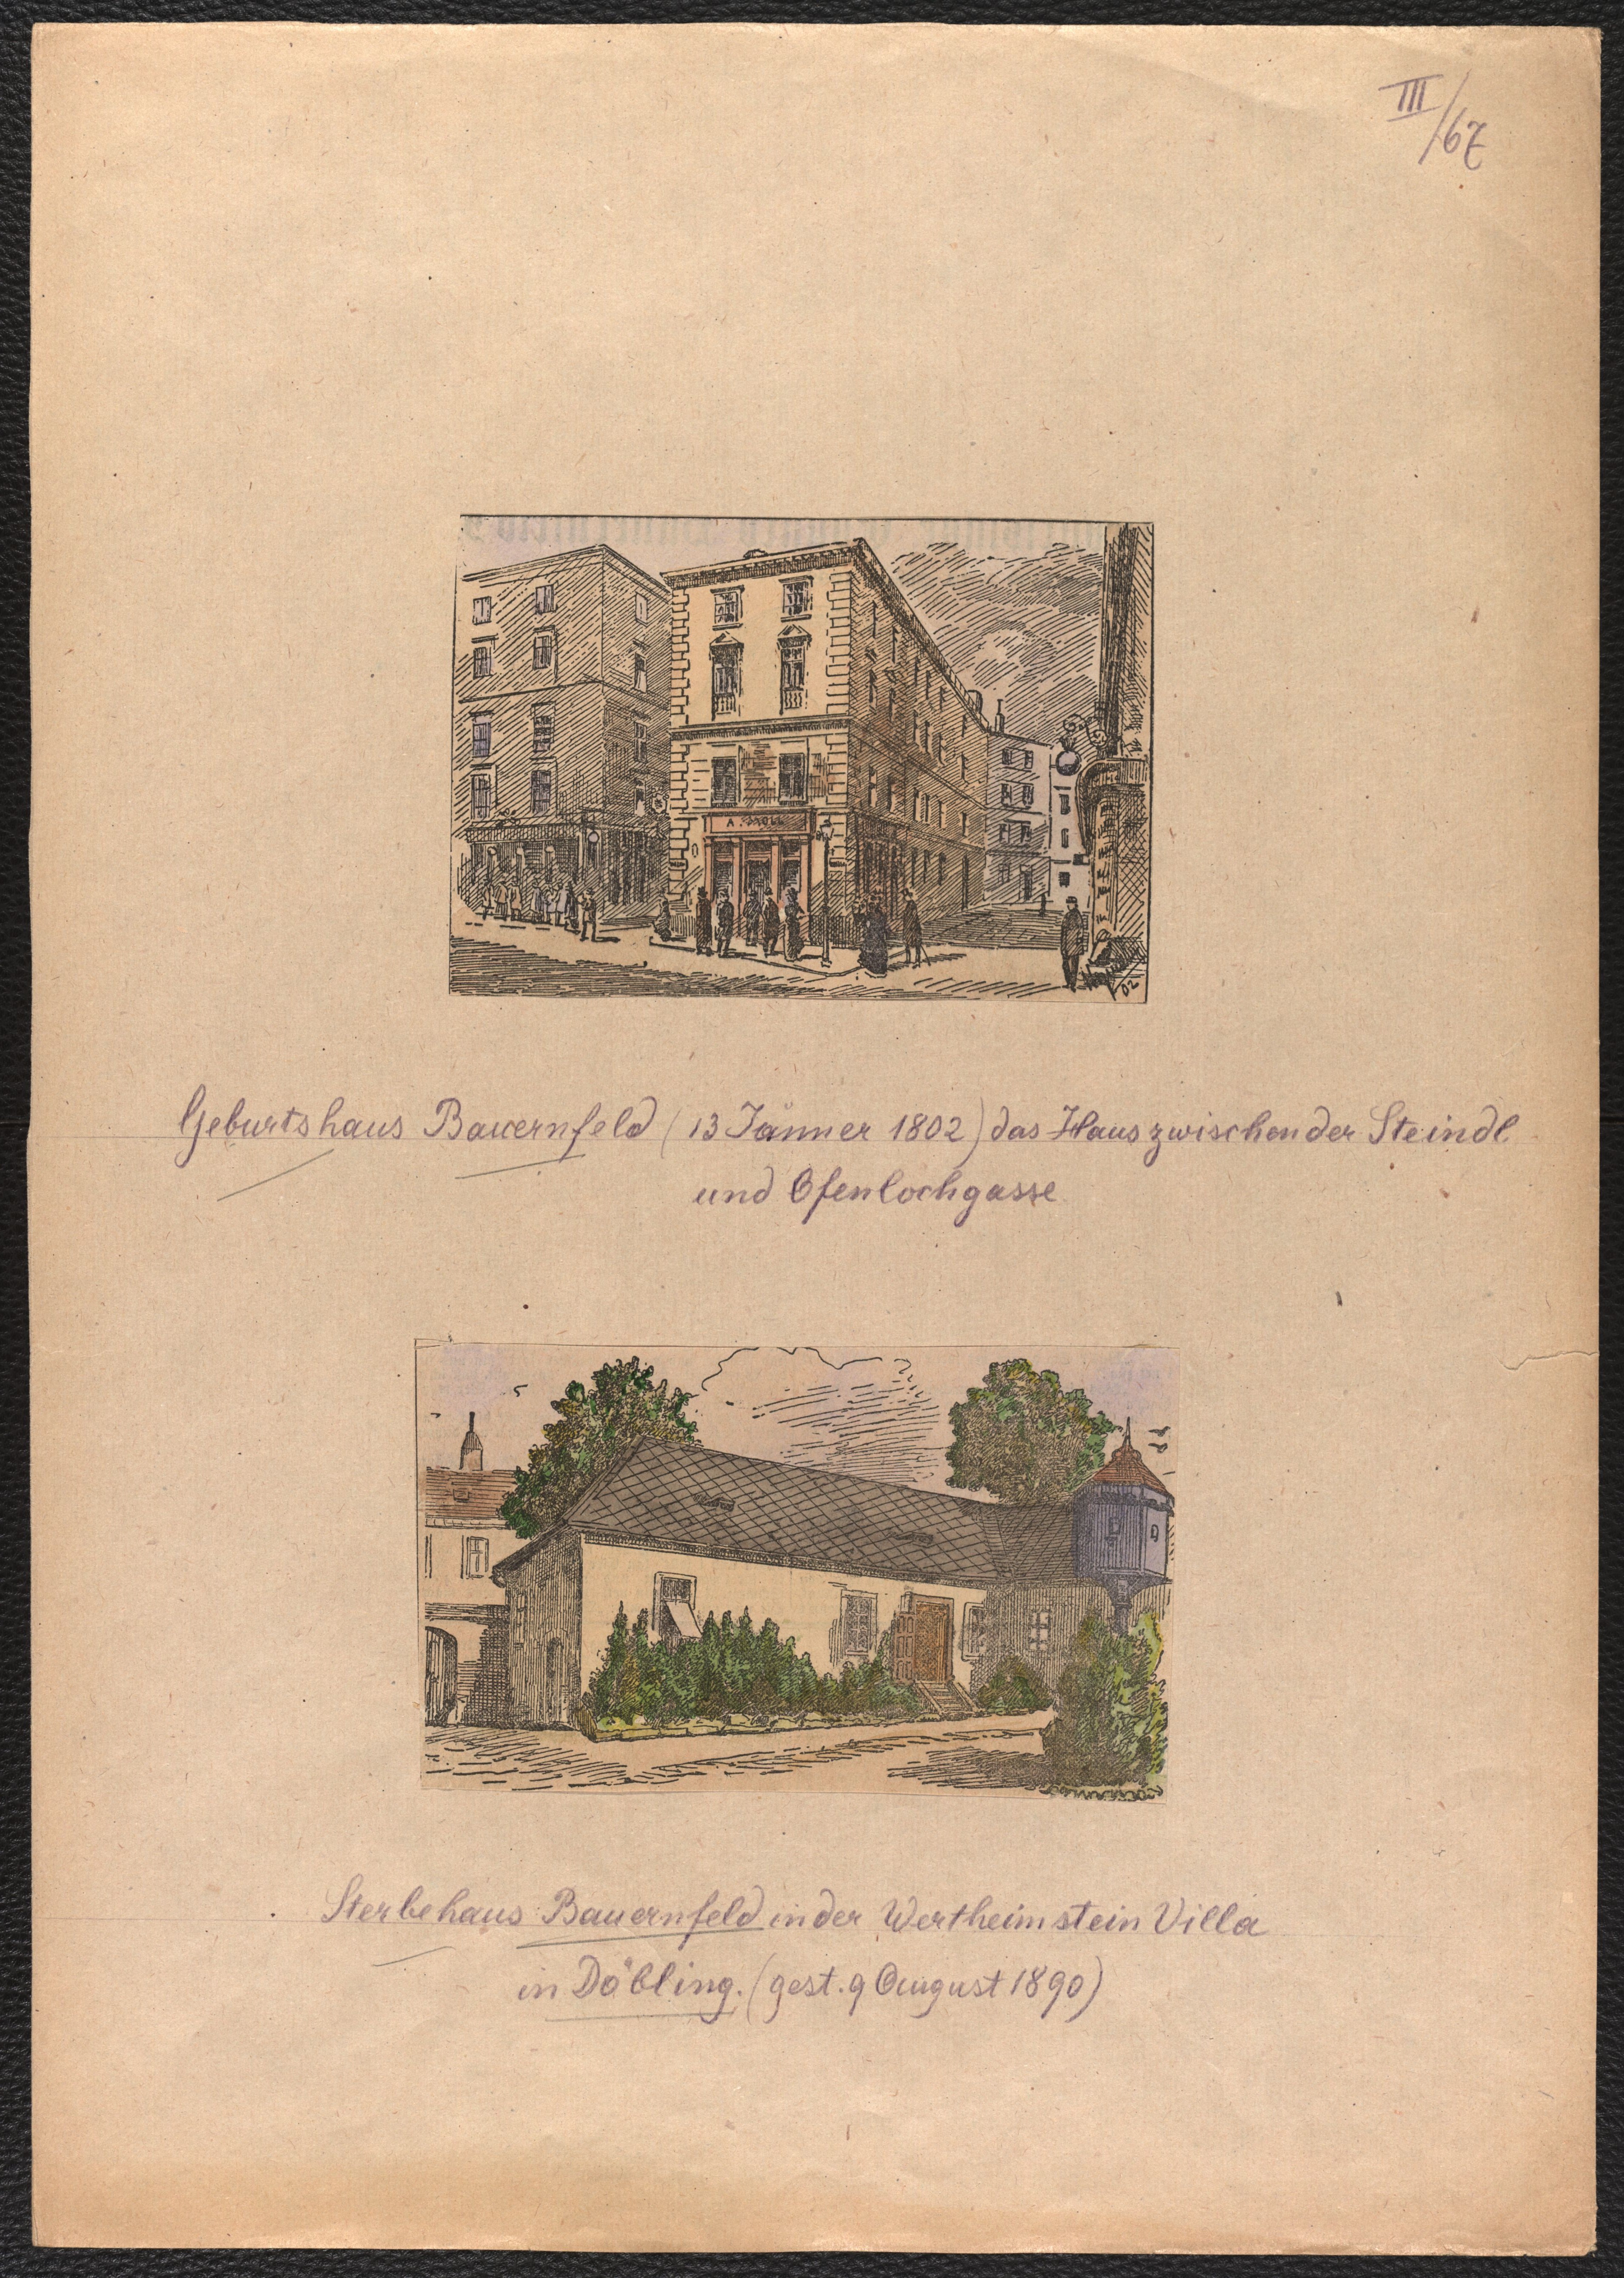 III/67
A.
02
Geburtshaus Bauernfeld (13 Jänner 1802) das Haus zwischen der Steindl
und Ofenlochgasse
Sterbehaus Bauernfeld in der Wertheimstein Villa
in Döbling. (gest. 9 August 1890)